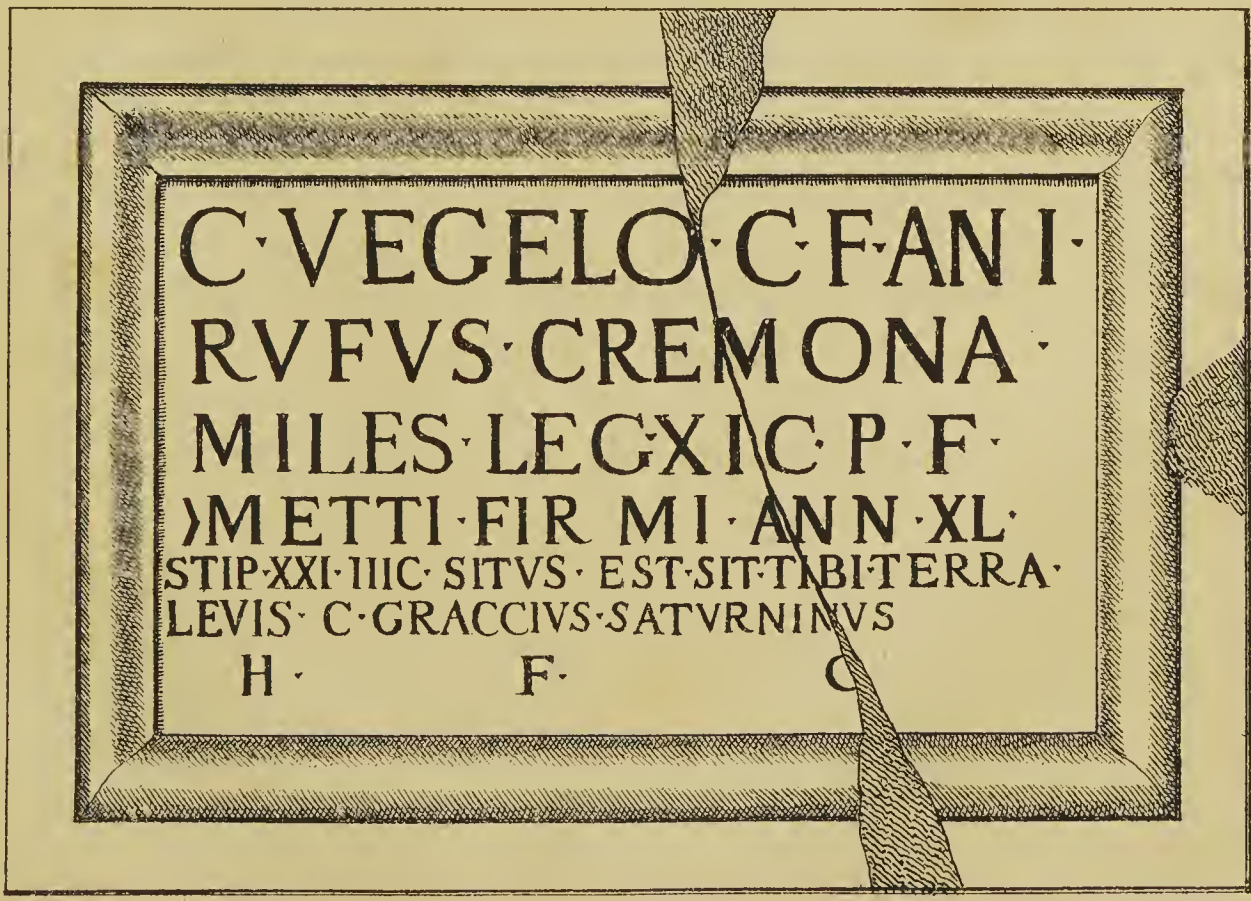 C·VEGELO·C·F·ANI·
RVFVS·CREMONA·
MILES·LEG·XI C·P·F·
)METTI·FIR MI·ANN·XL·
STIP·XXI·IIIC·SITVS·EST·SIT·TIBI·TERRA·
LEVIS·C·GRACCIVS·SATVRNINVS
H· F· C